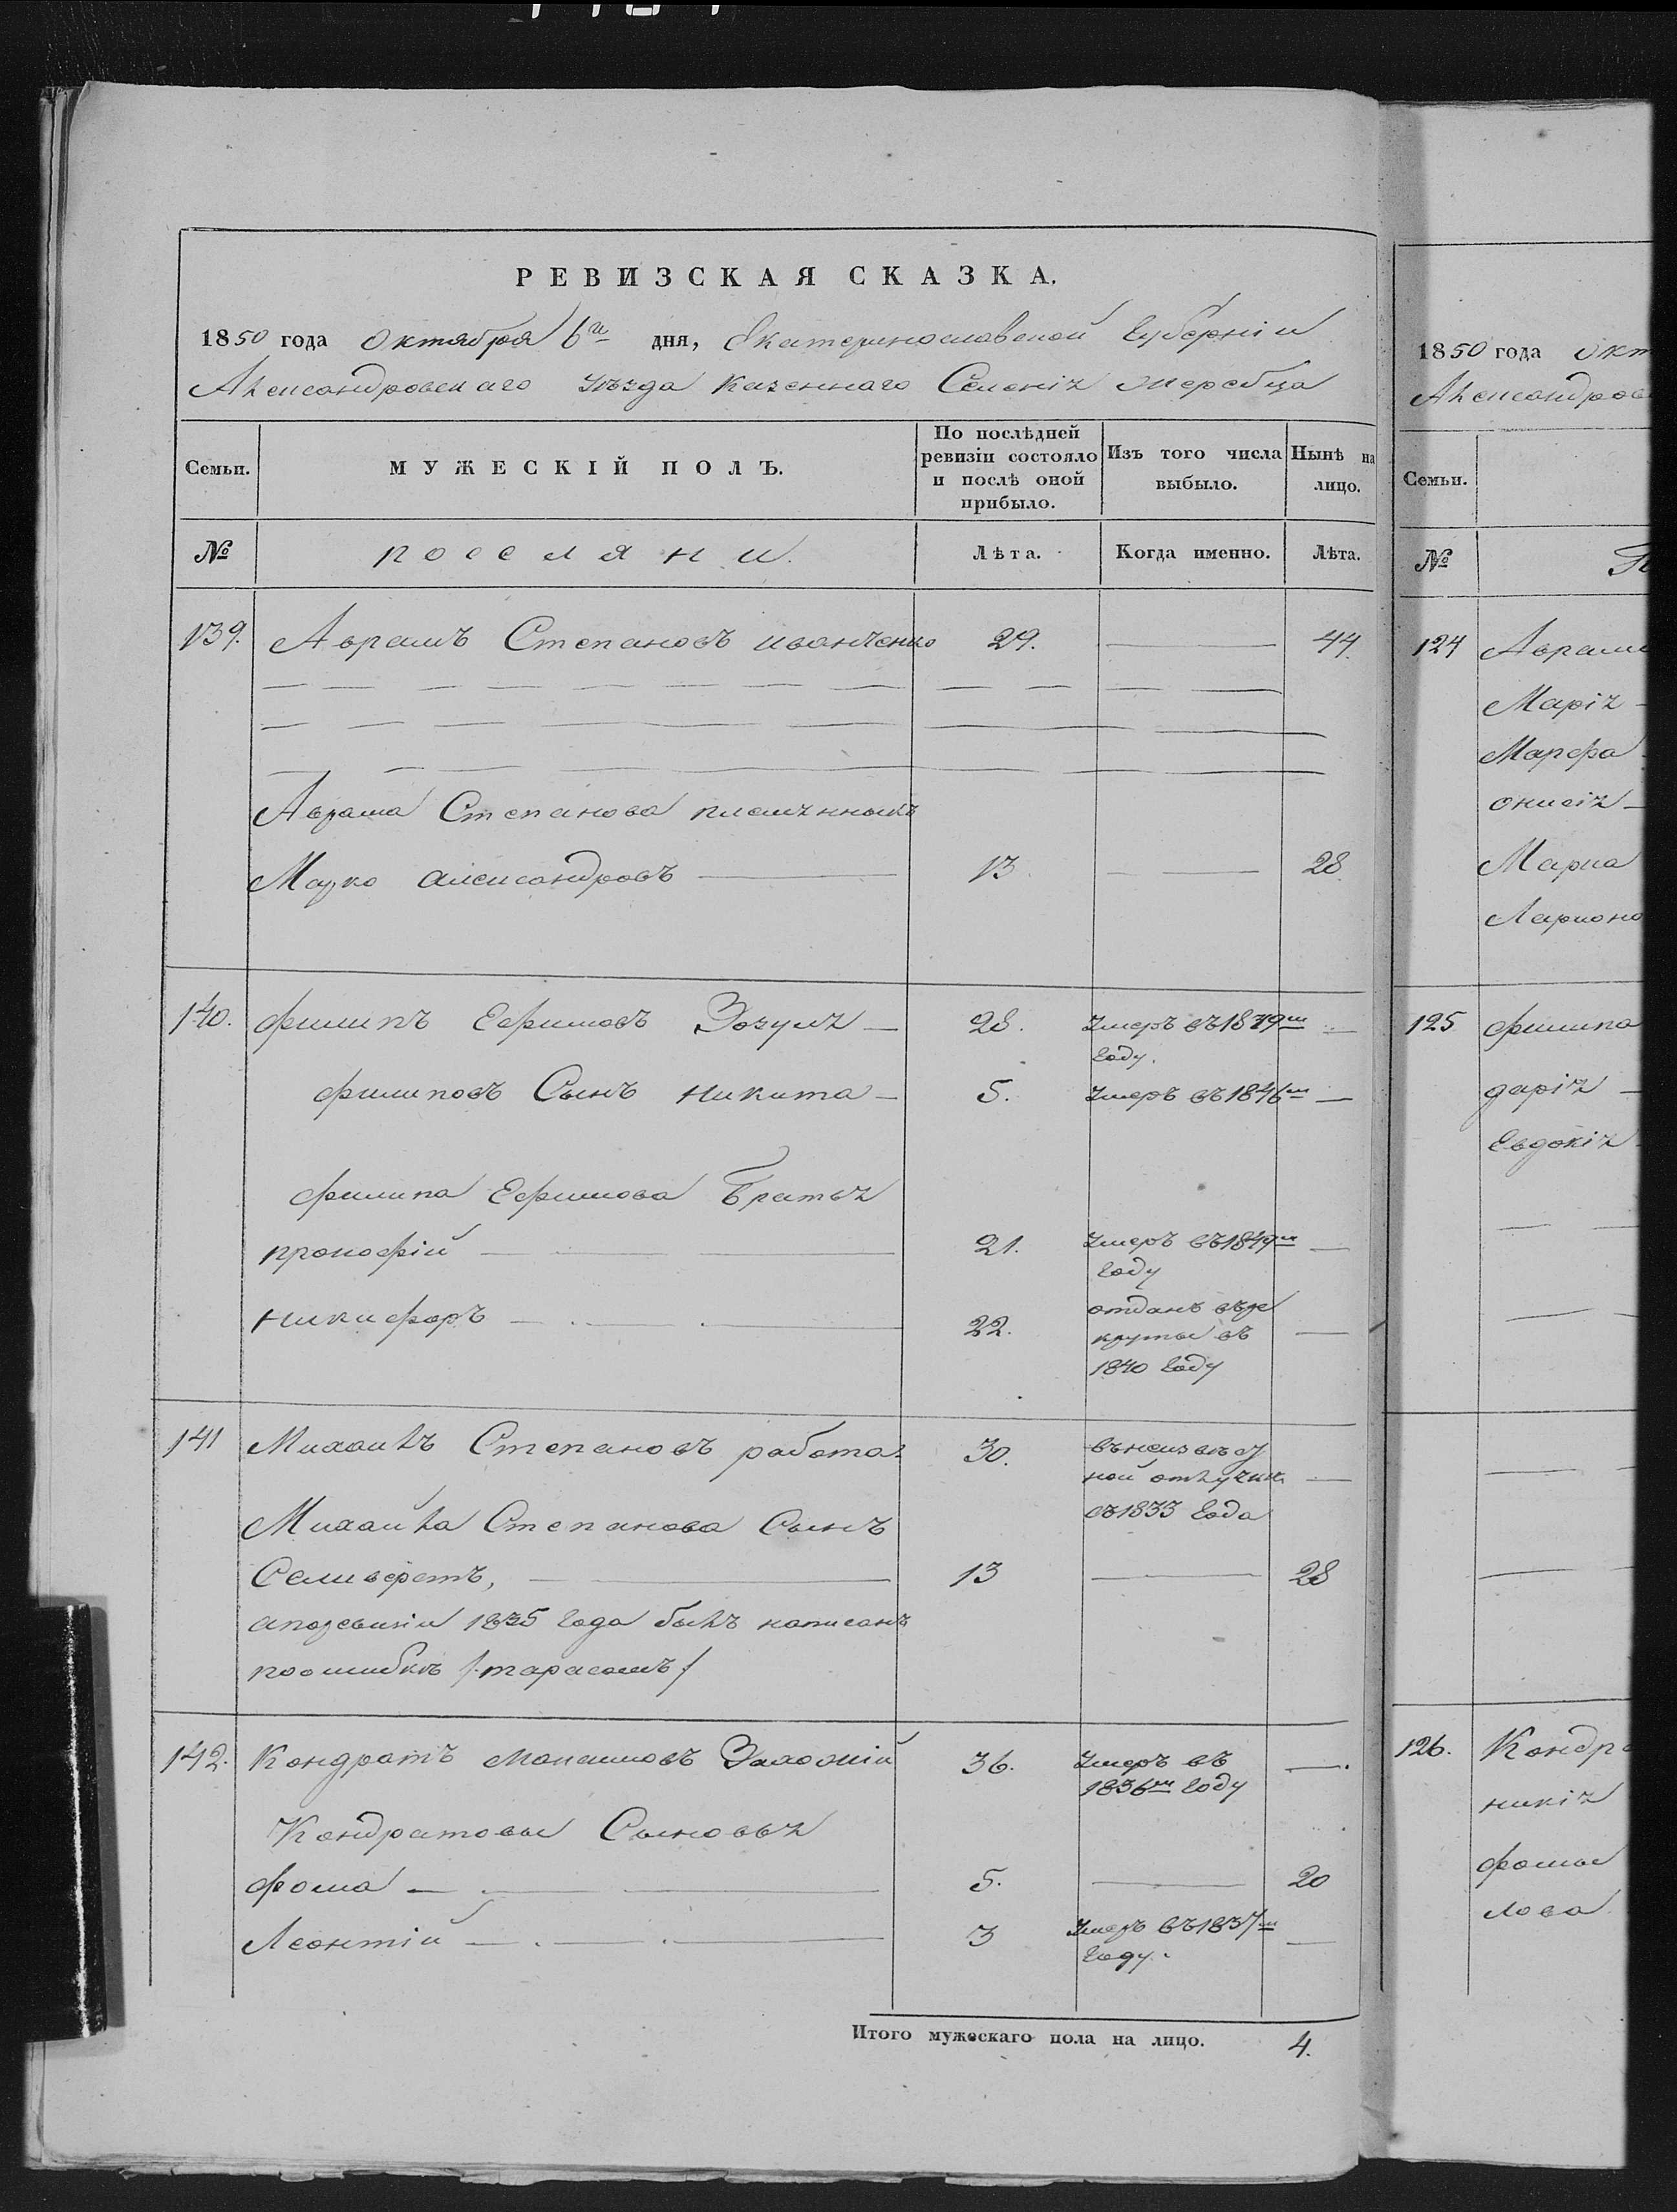 РЕВИЗСКАЯ СКАЗКА.
1850 года Октября 6го дня, Екатеринославской Губерніи
Александровскаго уѣзда казеннаго Селенія Жеребца
Семьи. МУЖЕСКІЙ ПОЛЪ. По послѣдней ревизіи состояло и послѣ оной прибыло. Изъ того числа выбыло. Нынѣ на лицо.
№ поселяни. Лѣта. Когда именно. Лѣта.
139. Аврамъ Степановъ иванченко 29. — 44.
Аврама Степанова племѣнныкъ
Марко александровъ — 13 — 28
140. филипъ Ефимовъ Зозуля — 28. Умеръ въ 1849м Году. —
филиповъ Сынъ никита — 5. Умеръ въ 1846м —
филипа Ефимова Братья
прокофій — 21. Умеръ въ 1849м Году —
никифоръ — 22. отданъ въре круты въ 1840 Году —
141 Михаилъ Степановъ 30. въ неизвѣст ной отлучки съ 1833 Года —
Михаила Степанова Сынъ
Селиверстъ, — 13 — 28
апоревизіи 1835 Года былъ написанъ
поошибкѣ /тарасомъ/
142. Кондратъ 36. Умеръ въ 1836м Году —
Кондратовы Сыновья
фома — 5. — 20
Леонтій — 3 Умеръ въ 1837м Году. —
Итого мужескаго пола на лицо. 4.
1850 года Окт
Александров
Семьи.
№ П
124 Аврам
Марія —
Марфа
онисія —
Марка
Ларионо
125 филипа
дарія —
Евдокія
126. Кондра
никія
фомы